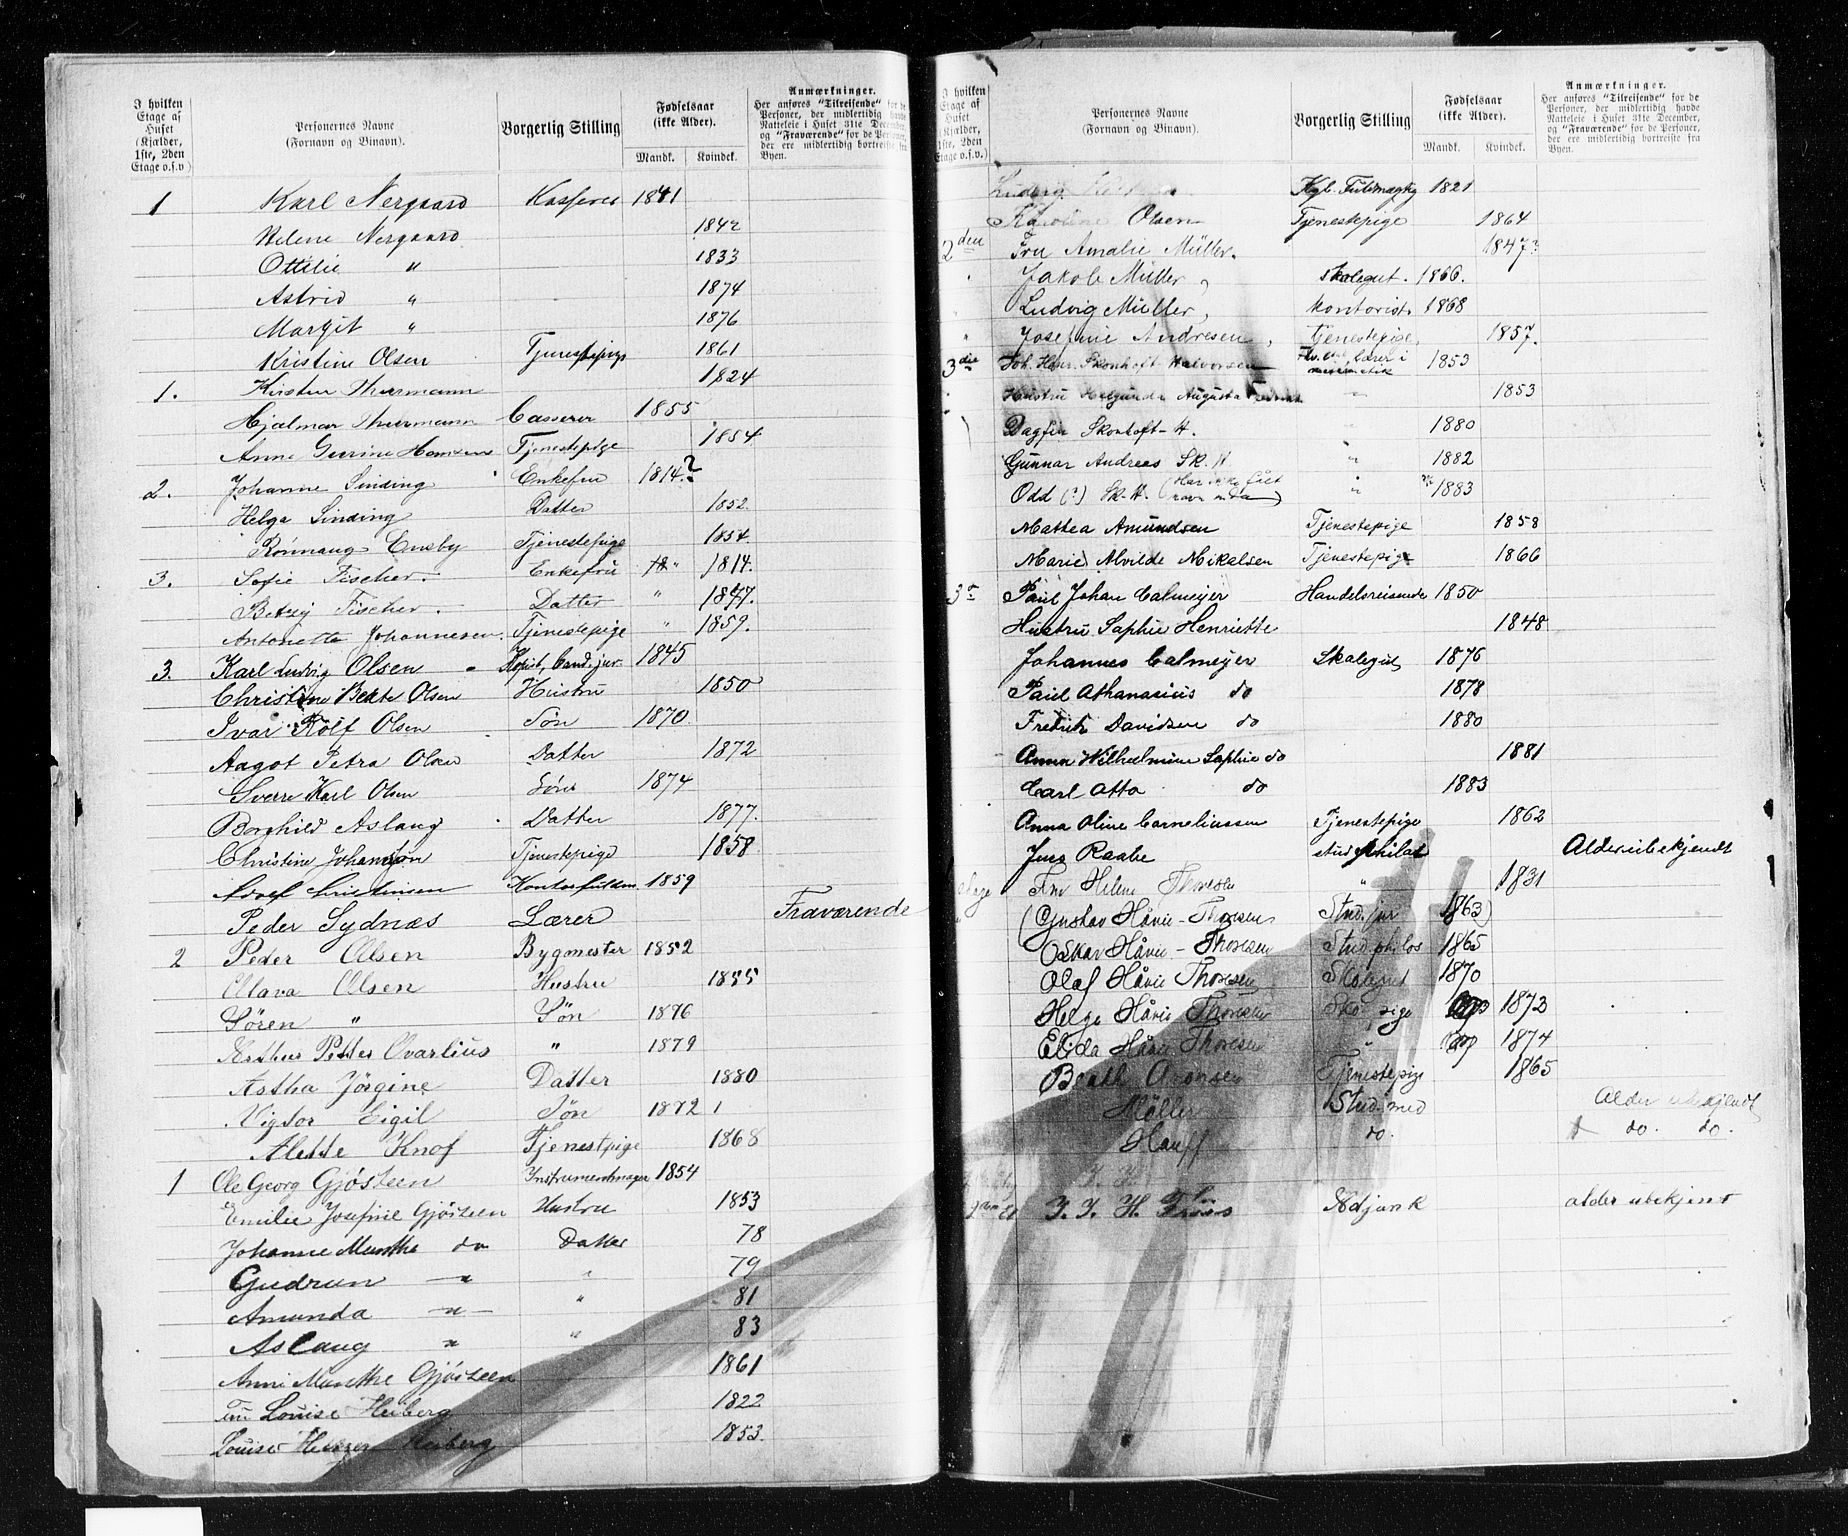 I hvilken Etage af Huset (Kjælder, 1ste, 2den Etage o.s.v)
Personernes Navne (Fornavn og Binavn).
Vorgerlig Stilling
Fødselsaar (ikke Alder).
Mandk. Kvindek.
Anmærkninger.
Her anføres "Tilreisende" for de Personer, der midlertidig havde Natteleie i Huset 31te December, og "Fraværende" for de Personer, der ere midlertidig bortreiste fra Byen.
1 Karl Nergaard Kasserer 1841
Helene Nergaard 1842
Ottilie " 1833
Astrid " 1874
Margit " 1876
Kristine Olsen Tjenestepige 1861
1. Kirsten Thurmann 1824
Hjalmar Thurmann Casserer 1855
Anne Gurine Hansen Tjenestepige 1854
2. Johanne Sinding Enkefru 1814?
Helga Sinding Datter 1852.
Rönnaug Eneby Tjenestepige 1854.
3. Sofie Fischer. Enkefru " 1814.
Betzy Fischer. Datter " 1847.
Antonette Johannesen. Tjenestepige " 1859.
3. Karl Ludvig Olsen Kopist, Cand. jur. 1845
Christine Beate Olsen Hustru 1850
Ivar Rolf Olsen Søn 1870.
Aagot Petra Olsen Datter 1872
Sverre Karl Olsen Søn 1874
Borghild Aslaug Datter 1877.
Christine Johansen Tjenestepige 1858.
Christensen Kontorfuldm. 1859
Peder Sydnæs Lærer Fraværende
2 Peder Olsen Bygmester 1852
Olava Olsen Hustru 1855
Sören " Søn 1876
Arthur Petter Ovarlius " 1879
Astha Jörgine Datter 1880
Vigtor Eigil Søn 1872 1
Alette Knof Tjenestpige 1868
1 Ole Georg Gjösteen Instrumentmager 1854
Emilie Josefine Gjösteen Hustru 1853
Johanne Munthe do Datter 78
Gudrun — " " 79
Amunda — " — " 81
Aslaug " " 83
Anni Munthe Gjösteen 1861
Fru Louise Heiberg 1822
Louise Heiberg 1853.
I hvilken Etage af Huset (Kjælder, 1ste, 2den Etage o.s.v)
Personernes Navne (Fornavn og Binavn).
Vorgerlig Stilling
Fødselsaar (ikke Alder).
Mandk. Kvindek.
Anmærkninger.
Her anføres "Tilreisende" for de Personer, der midlertidig havde Natteleie i Huset 31te December, og "Fraværende" for de Personer, der ere midlertidig bortreiste fra Byen.
Ludvig Kgl. Fuldmægtig 1821
Karoline Olsen Tjenestepige 1864
2den Fru Amalie Müller. 1847?
Jakob Müller, Skolegut. 1866.
Ludvig Müller, Kontorist. 1868
Josefine Andresen, Tjenestepige, 1857.
3die Joh. Henr. Skonhoft Halvorsen lærer i 1853
Hustru Helgunda Augusta " 1853
Dagfin Skonhoft-H. " 1880
Gunnar Andreas Sk. H " 1882
Odd (?) Sk-H. (Har ikke fået navn enda) " 1883
Mathea Amundsen Tjenestepige 1858
Marie Alvilde Mikelsen Tjenestepige 1866
3 Paul Johan Calmeyer Handelsreisende 1850
Hustru Saphie Henriette 1848
Johannes Calmeyer Skolegut 1876
Paul Athanasius do 1878
Fredrik Davidsen do 1880
Anna Wilhelmine Saphie do 1881
Carl Otto do 1883
Anna Oline Corneliussen Tjenestepige 1862
Jens Raabe stud philol Alder ubekjendt
Fru Helene Thoresen " 1831
(Gustav Håvie-Thoresen Stud. jur 1863)
Oskar Håvie-Thoresen Stud philos 1865
Olaf Håvie Thoresen Skolegut 1870
Helga Håvie Thoresen Sko pige 1873
Elida Håvie Thoresen 1874
Aronsen Tjenestepige 1865
Möller Stud. med Alder ubekjendt
Hauff do. do. do.
2den Et J. J. H. Friis Adjunk alder ubekjent